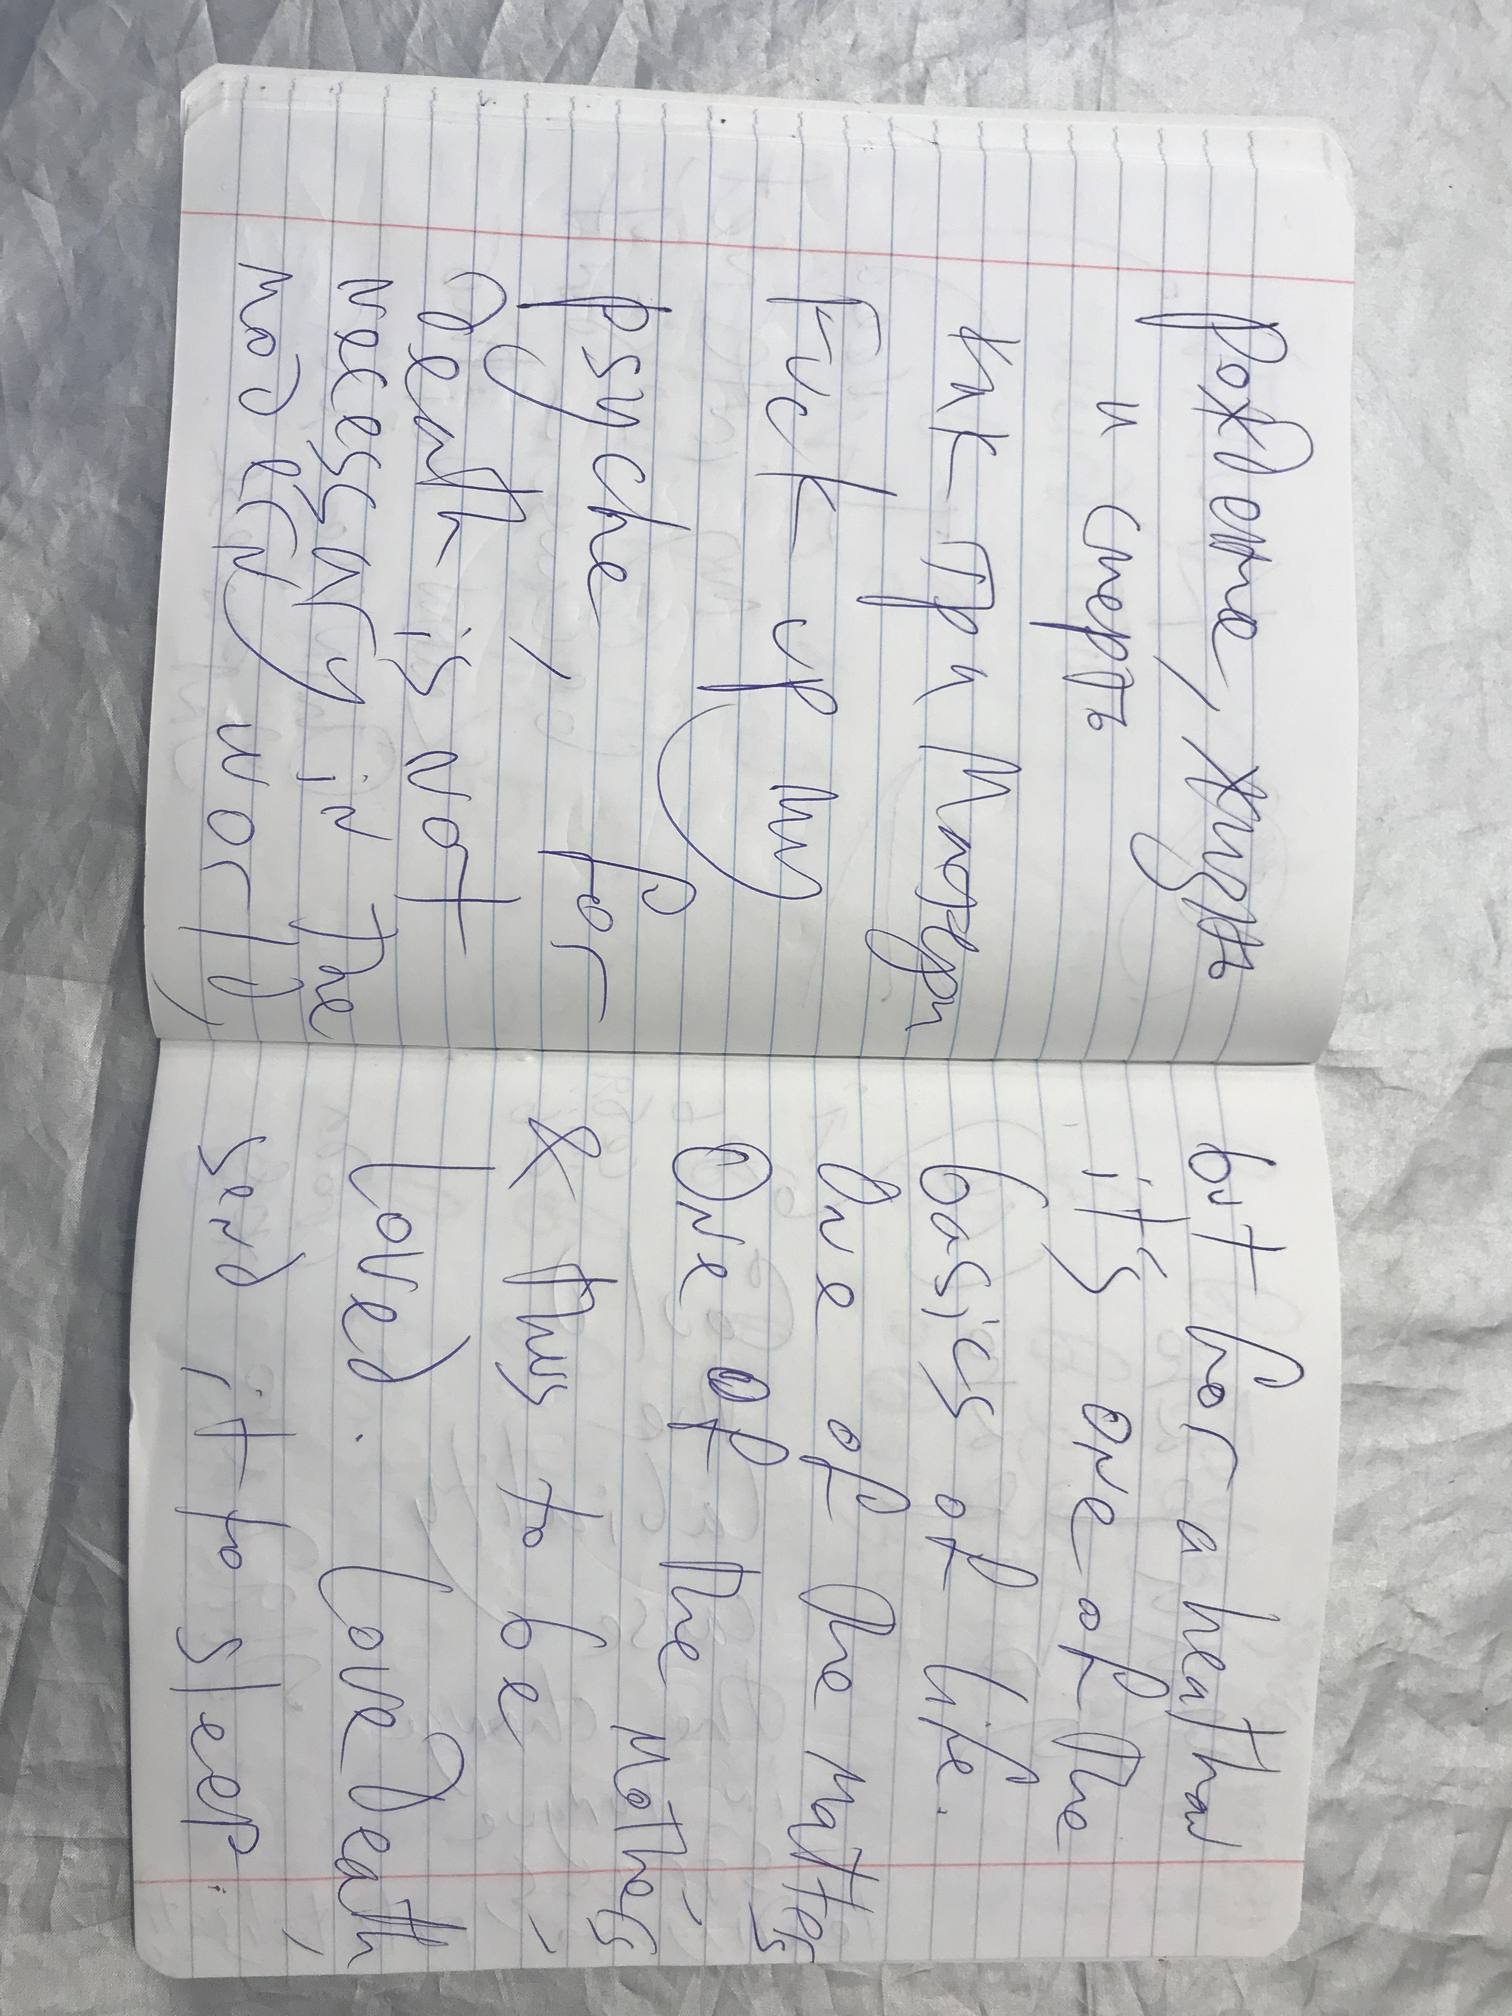 рождение, жизнь
и смерть
как три матери
Fuck up my
psyche, for
death is not
necessary in the
modern world
but for a heathen
it's one of the
basics of life.
One of the matters
One of the mothers
& thus to be
loved. Love death,
send it to sleep.